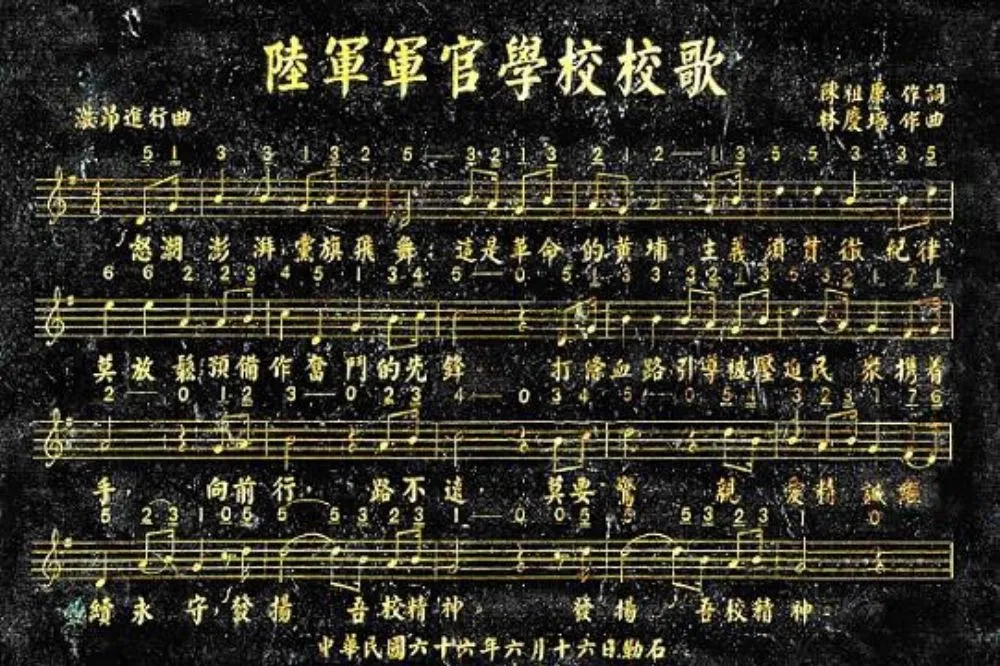 陸軍軍官學校校歌
陳祖康 作詞
林慶培 作曲
激昂進行曲
5 1 3 3 1 3 2 5 — 3 2 1 3 2 1 2 — 1 3 5 5 3 3 5
怒潮澎湃,黨旗飛舞,這是革命的黃埔 主義須貫徹紀律
6 6 2 2 3 4 5 1 3 4 5 — 0 5 1 3 3 2 1 3 5 3 2 1 7 1
莫放鬆預備作奮鬥的先鋒 打條血路引導被壓迫民眾携着
2 — 0 1 2 3 — 0 2 3 4 — 0 3 4 5 — 0 5 4 3 2 3 1 7 6
手, 向前行, 路不遠, 莫要驚 親愛精誠繼
5 2 3 1 0 5 5 5 3 2 3 1 — 0 0 5 5 5 3 2 3 1 0
續永守,發揚 吾校精神, 發揚 吾校精神。
中華民國六十六年六月十六日勒石